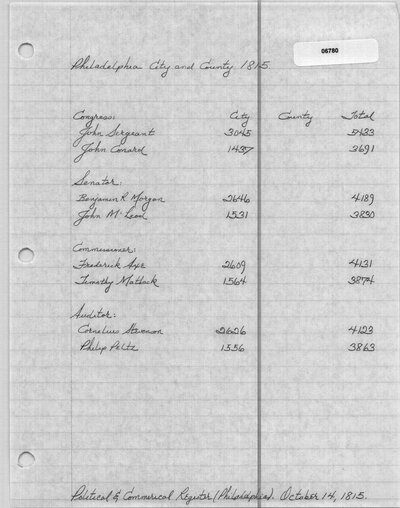 06780
Philadelphia City and County 1815.
Congress: City County Total
John Sergeant 3045 5433
John Conard 1437 3691
Senator:
Benjamin R Morgan 2646 4189
John McLeod 1531 3830
Commissioner:
Frederick Axe 2609 4131
Timothy Matlack 1564 3874
Auditor:
Cornelius Stevenson 2626 4123
Philip Peltz 1556 3863
Political & Commerical Register (Philadelphia). October 14, 1815.